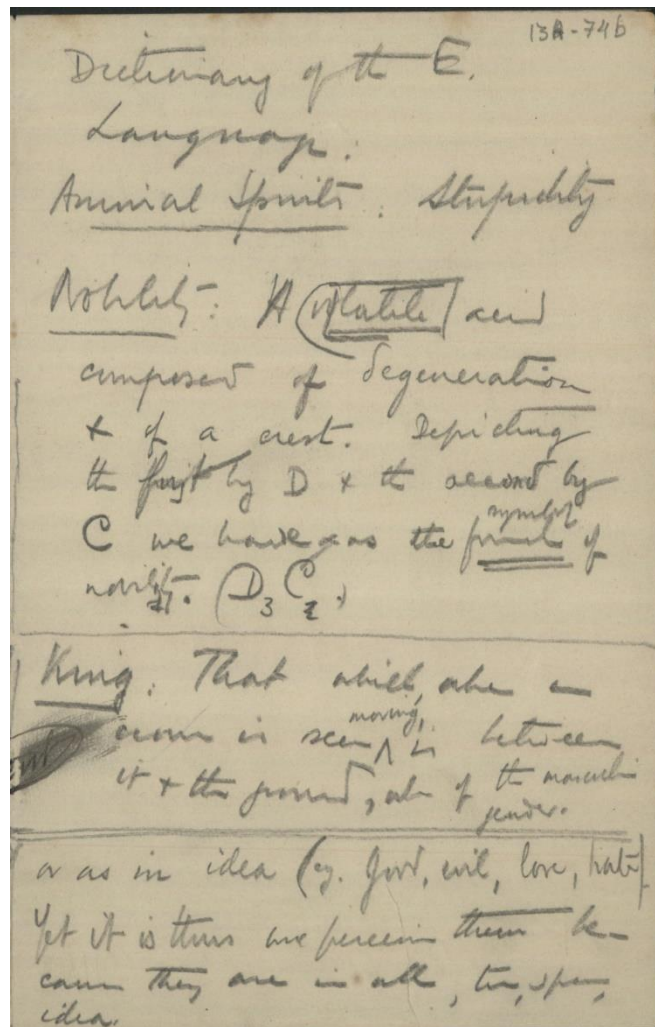 13A-74b
Dictionary of the E.
Language.
Animal Spirits. Stupidity
Nobility: A volatile acid
composed of degeneration
+ of a crest. Depicting
the first by D + the second by
symbol
C we have as the formula of
nobility. (D3 C2)
King. That which, when a
moving,
crown is seen is between
it + the ground, when of the masculine
gender.
or as in idea (eg. God, evil, love, hate)
Yet it is thus we perceive them be-
cause they are in all, time, space,
idea.